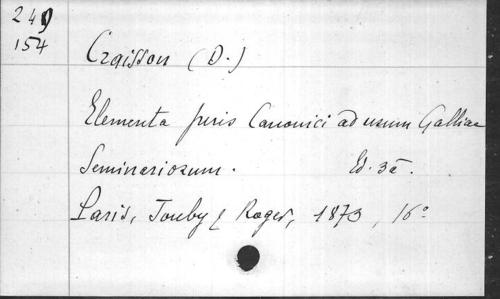 249
154
Craisson (D.)
Elementa juris Canonici ad usum Galliae
Seminariorum. Ed. 3a.
Paris, Jouby & Roger, 1873, 16°